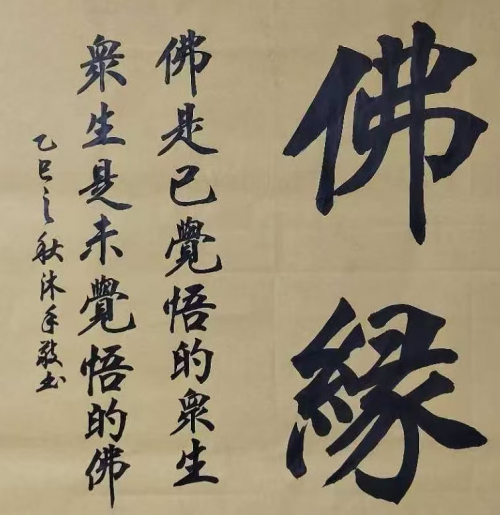 佛緣
佛是已覺悟的衆生
衆生是未覺悟的佛
乙巳之秋沐手敬书